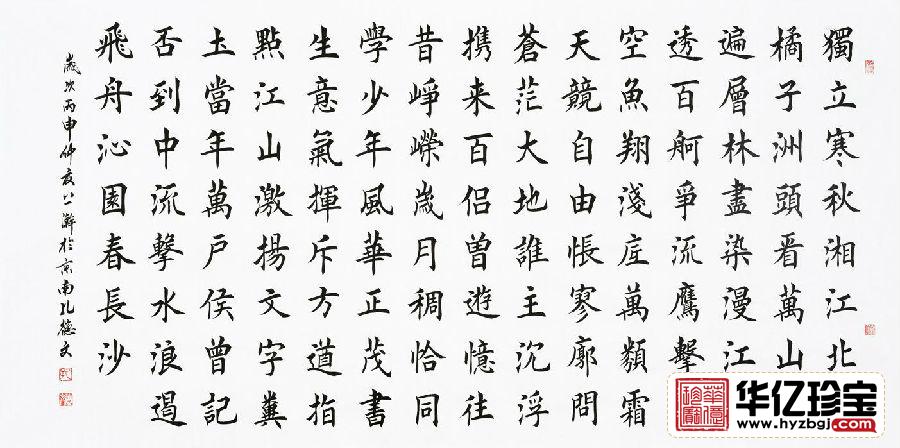 獨立寒秋湘江北
橘子洲頭看萬山
遍層林盡染漫江
透百舸爭流鷹擊
空魚翔淺底萬類霜
天競自由悵寥廓問
蒼茫大地誰主沉浮
携来百侣曾遊憶往
昔崢嶸歲月稠恰同
學少年風華正茂書
生意氣揮斥方遒指
點江山激揚文字糞
土當年萬戶侯曾記
否到中流擊水浪遏
飛舟沁園春長沙
歲次丙申仲夏於京南孔德文
华亿珍宝
www.hyzbgj.com